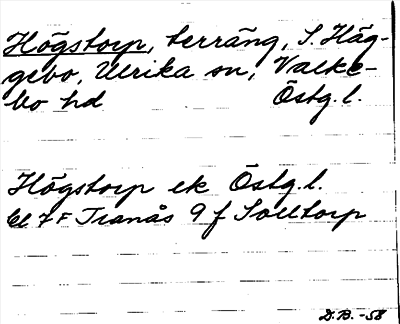 Högstorp, terräng, S. Häg-
gebo, Ulrika sn, Valke-
bo hd Östg.l.
Högstorp ek Östg.l.
7 F Tranås 9 f Solltorp
D.B. -58